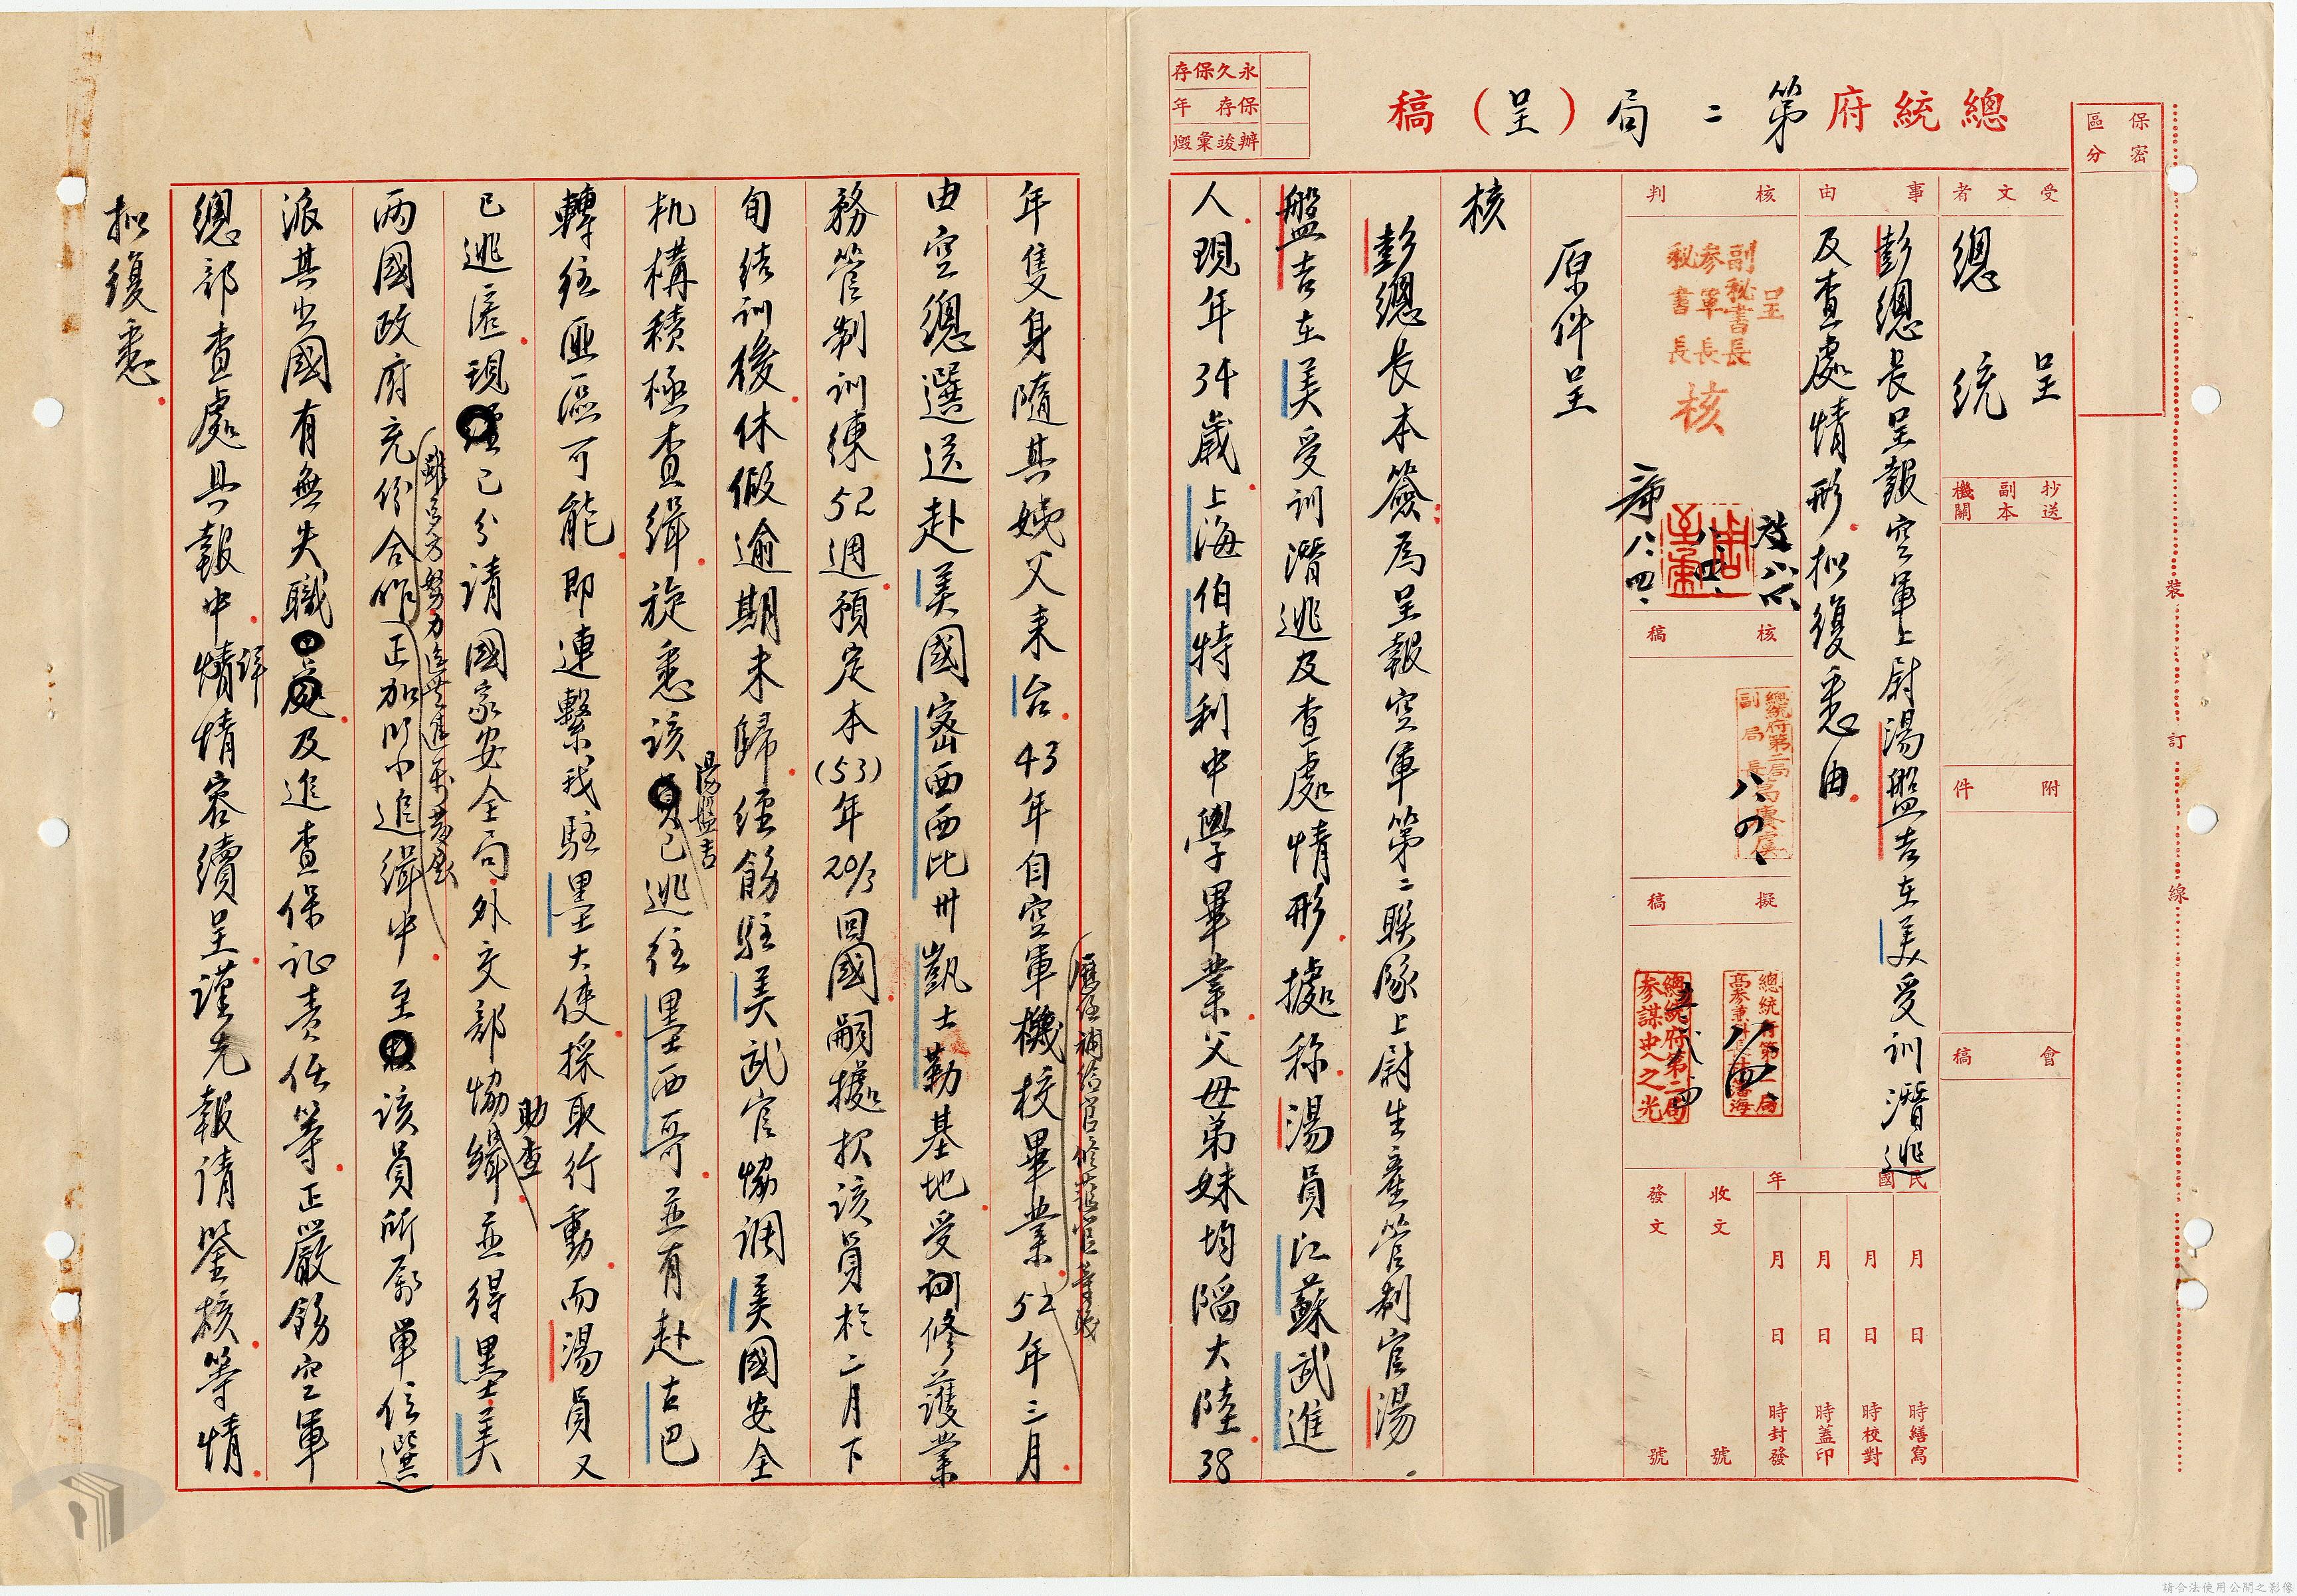 總統府第二局（呈）稿
永久保存
保存 年
辦竣彙燬
保密區分
受文者
總統
呈
抄送副本機關
附件
會稿
事由
彭總長呈報空軍上尉湯盤吉在美受訓潛逃
及查處情形.擬復悉由.
核判
呈
副秘書長
參軍長
秘書長
核
八、四、
核稿
總統府第二局副局長
八、四、
擬稿
總統府第二局
總統府第二局參謀史之光
民國 年
月 日 時繕寫
月 日 時校對
月 日 時蓋印
月 日 時封發
收文 號
發文 號
原件呈
核
彭總長本簽為呈報空軍第二聯隊上尉生產管制官湯
盤吉在美受訓潛逃及查處情形.據称.湯員江蘇武進
人.現年34歲.上海伯特利中學畢業.父母弟妹均陷大陸.38
年隻身隨其姨父來台.43年自空軍機校畢業.52年三月
歷任補給官修護官等職
由空總選送赴美國密西西比卅凱士勒基地受訓修護業
務管制訓練52週.預定本(53)年20/3回國.嗣據报該員於二月下
旬結訓後.休假逾期未歸.經飭駐美武官協調美國安全
机構積極查緝.旋悉該員已逃往墨西哥.並有赴古巴
湯盤吉
轉往匪區可能.即連繫我駐墨大使採取行動.而湯員又
已逃匿.現已分請國家安全局.外交部協緝.並得墨.美
助查
兩國政府充份合作.正加以小追緝中.至該員所屬單位選
雖多方努力迄無進一步發展
派其出國有無失職.及追查保証責任等.正嚴飭空軍
總部查處具報中.情情容續呈.謹先報請鑒核.等情.
詳
擬復悉.
裝 訂 線
請合法使用公開之影像